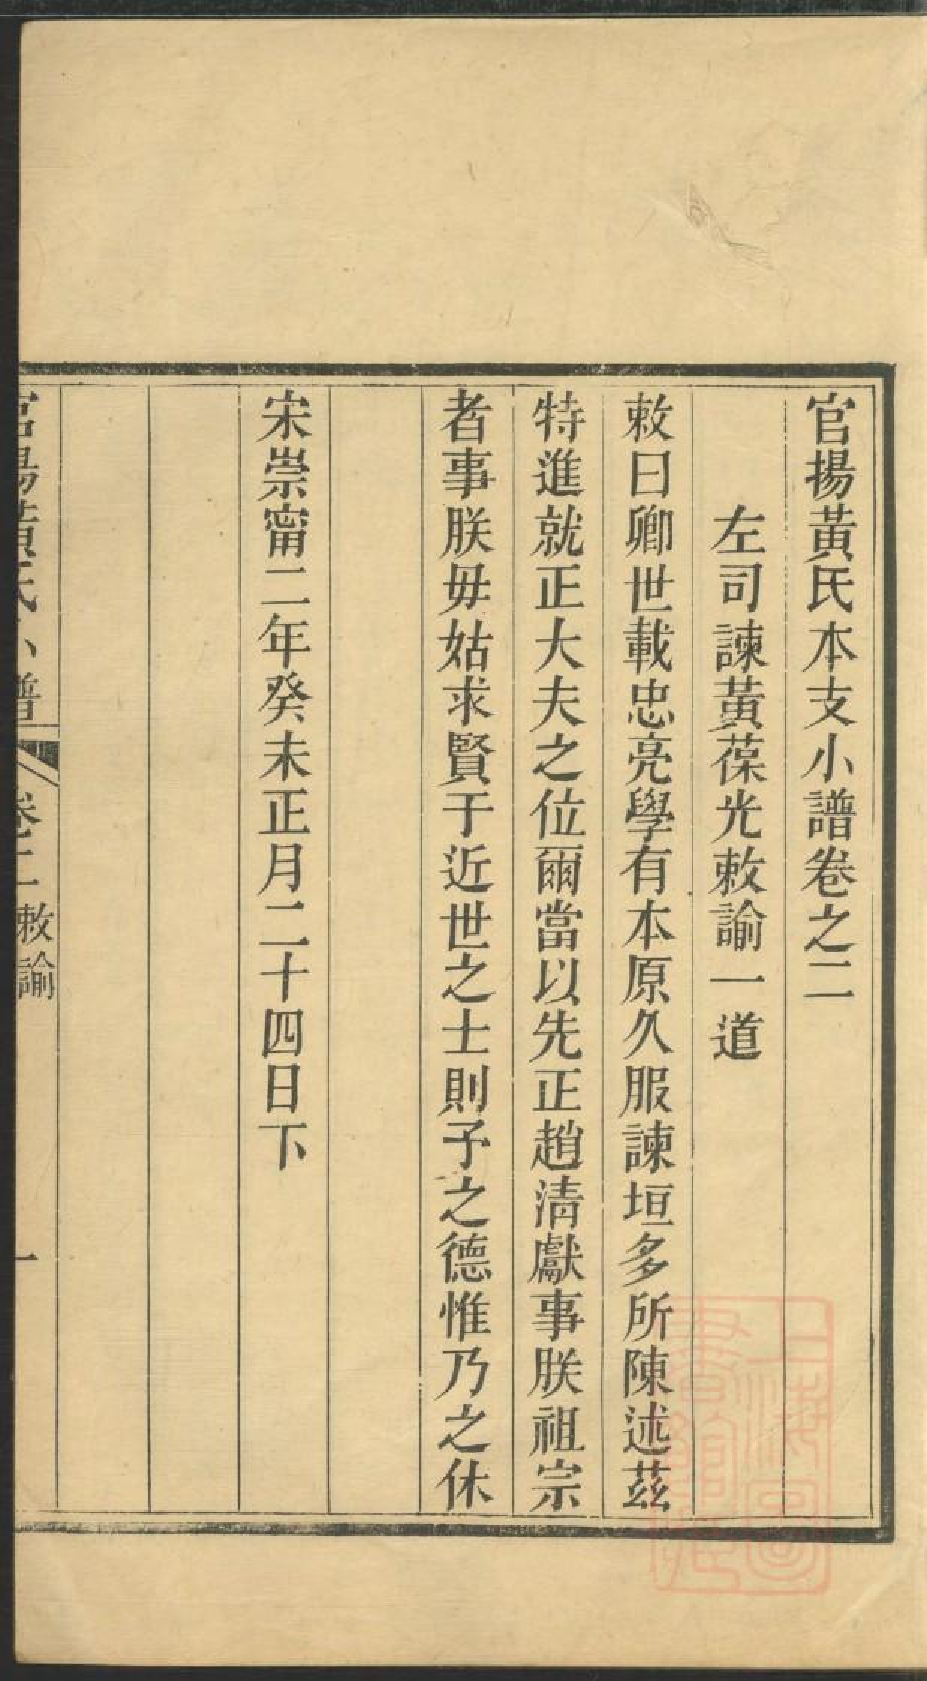 官揚黃氏本支小譜卷之二
左司諫黃葆光敕諭一道
敕曰卿世載忠亮學有本原久服諫垣多所陳述茲
特進就正大夫之位爾當以先正趙清獻事朕祖宗
者事朕毋姑求賢于近世之士則予之德惟乃之休
宋崇甯二年癸未正月二十四日下
官揚黃氏小譜
卷二
敕諭
一
上海圖書館藏